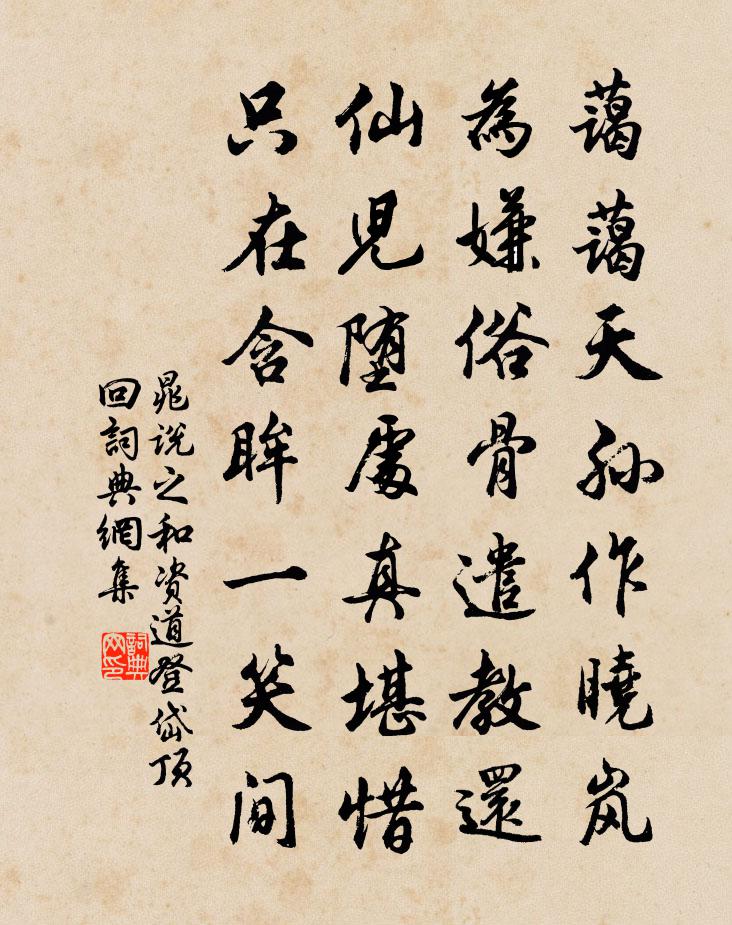 藹藹天孙作曉岚
為嫌俗骨遣教還
仙児堕處真堪惜
只在含眸一笑间
晁说之和资道登岱顶
回詞典網集
詞典
网印